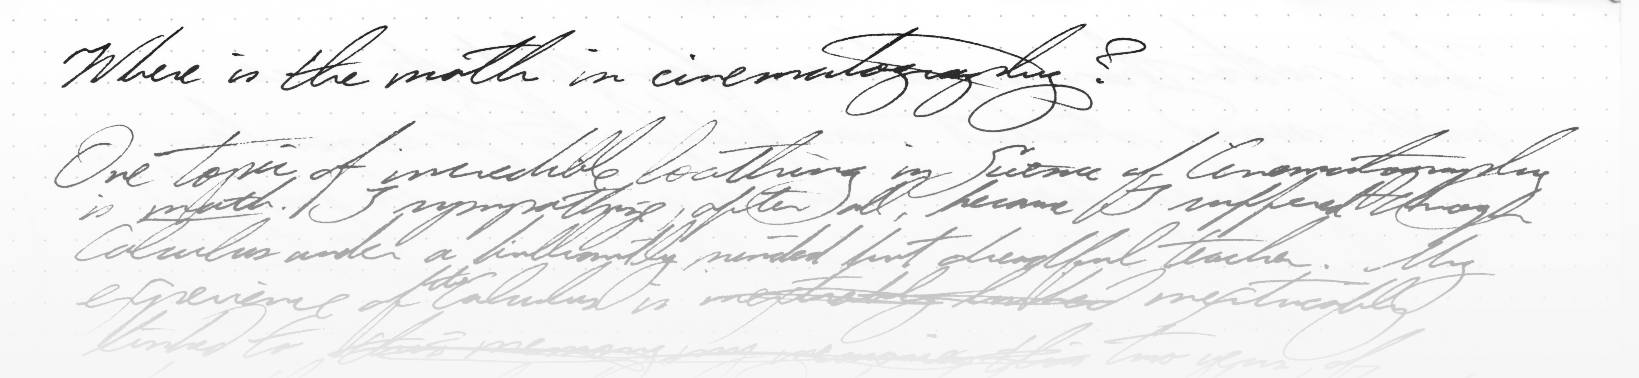 Where is the math in cinematography?
One topic of incredible loathing in Science of Cinematography
is math. I sympathize, after all, because I suffered through
Calculus under a brilliantly minded but dreadful teacher. My
experience of the Calculus is inextricably linked inextricably
linked to this memory my memories this two years, of